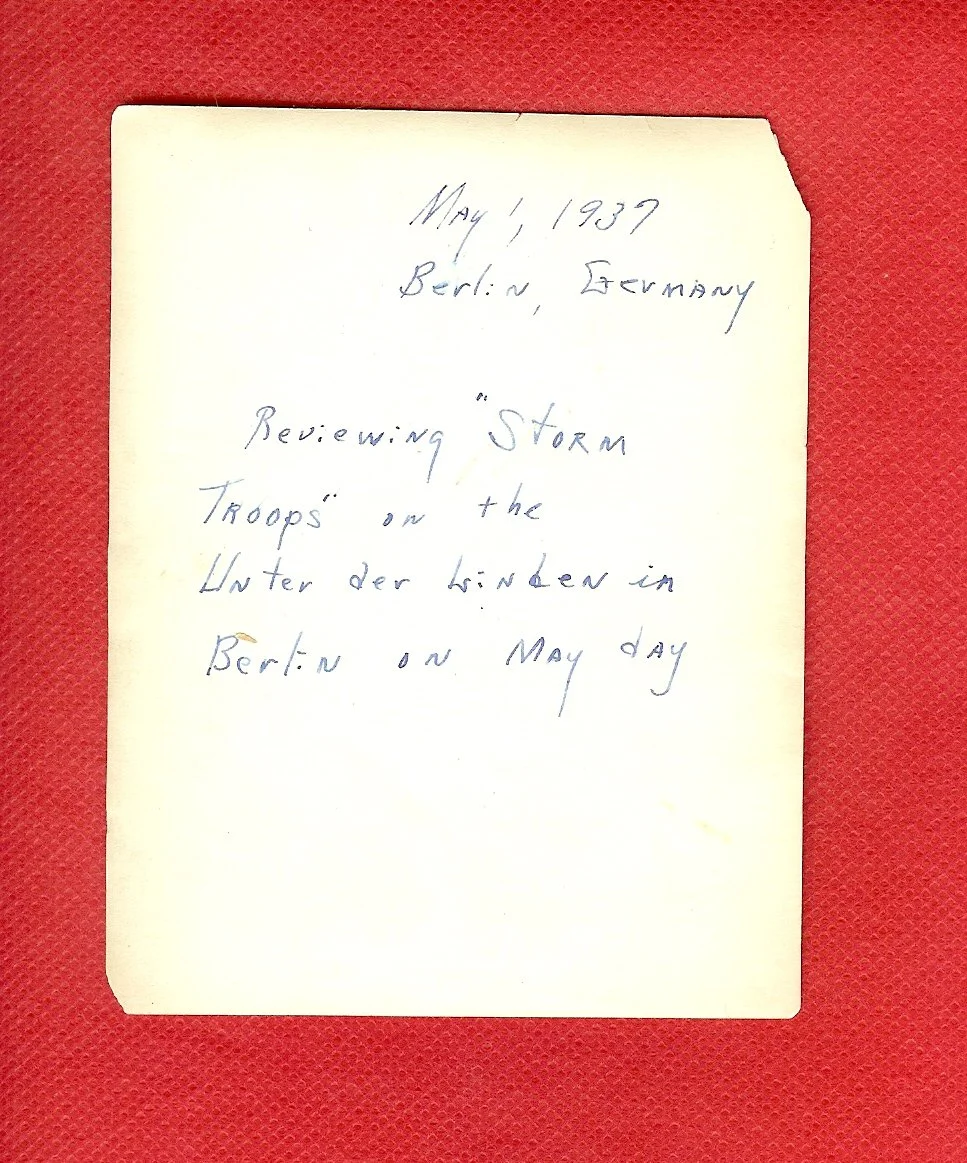 May 1, 1937
Berlin, Germany
Reviewing "Storm
Troops" on the
Unter der Linden in
Berlin on May day